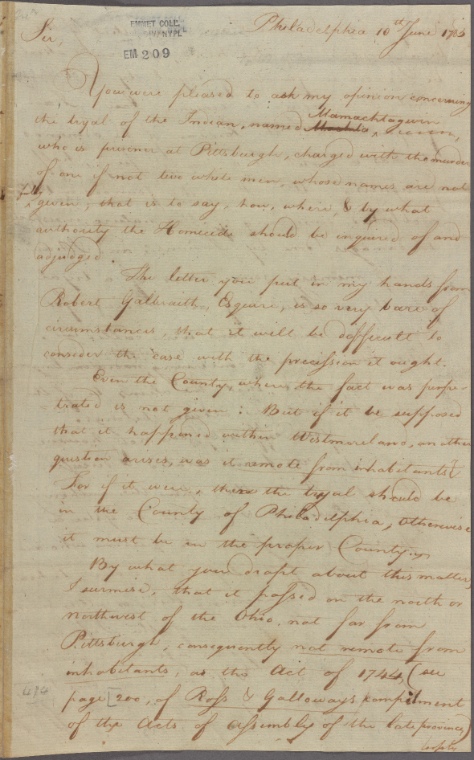 Philadelphia 10th June 1785
EMMET COLL.
EM 209
Sir,
You were pleased to ask my opinion concerning
the tryal of the Indian, named Mamachtaguin
who is prisoner at Pittsburgh, charged with the murder
of one if not two white men, whose names are not
given; that is to say, how, where, & by what
authority the Homicide should be inquired of and
adjudged.
The letter you put in my hands from
Robert Galbraith, Esquire, is so very bare of
circumstances, that it will be difficult to
consider the case with the precission it ought.
Even the County, where the fact was perpe-
trated is not given: But if it be supposed
that it happened within Westmoreland, another
question arises, was it remote from inhabitants?
For if it were, there the tryal should be
in the County of Philadelphia, otherwise
it must be in the proper County.
By what you drop't about this matter,
I surmise, that it passed on the north or
northwest of the Ohio, not far from
Pittsburgh, consequently not remote from
inhabitants, as the Act of 1744 (see
page 200, of Ross & Galloway's compilment
of the Acts of Assembly of the late province)